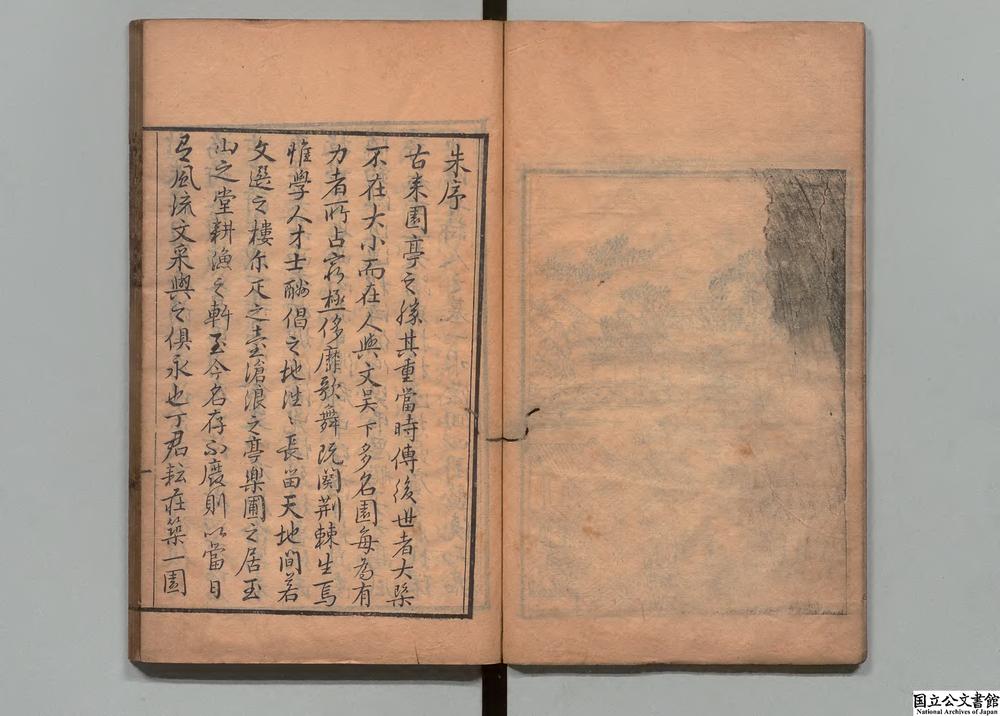 朱序
古来園亭之勝其重當時傳後世者大槩
不在大小而在人與文吴下多名園每為有
力者所占窮極侈靡歌舞既闋荆棘生焉
惟學人才士酬倡之地徃〻長留天地間若
文選之樓尔疋之臺滄浪之亭樂圃之居玉
山之堂耕漁之軒至今名存而不廢則以當日
風流文采與之俱永也丁君耘荘築一園
国立公文書館
National Archives of Japan